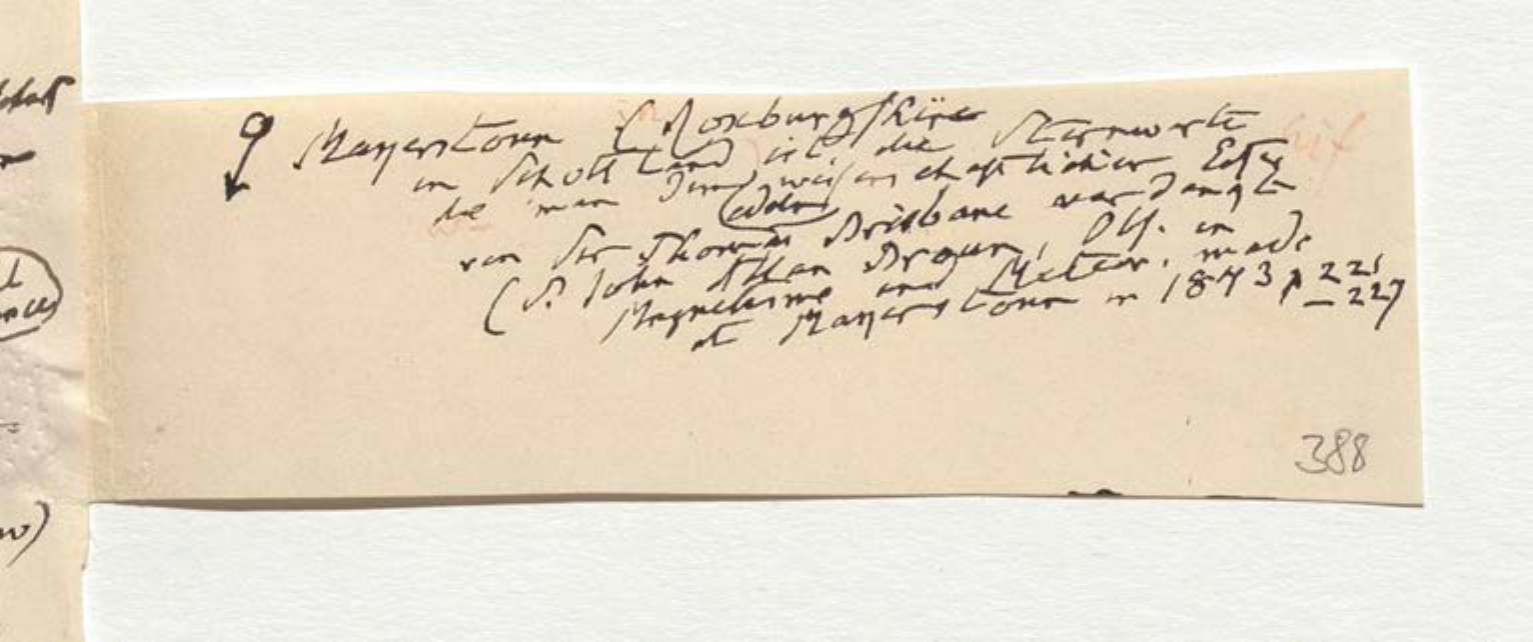 Makerstoun (Roxburghshire
in Schottland) ist die Sternwarte
die man dem wissenschaftlichen Eifer
edeln
von Sir Thomas Brisbane verdankt
(S. John Allan Broun, Obs. in
Magnetisme and Meteor. made
at Makerstoun in 1843 p 221
– 227)
388